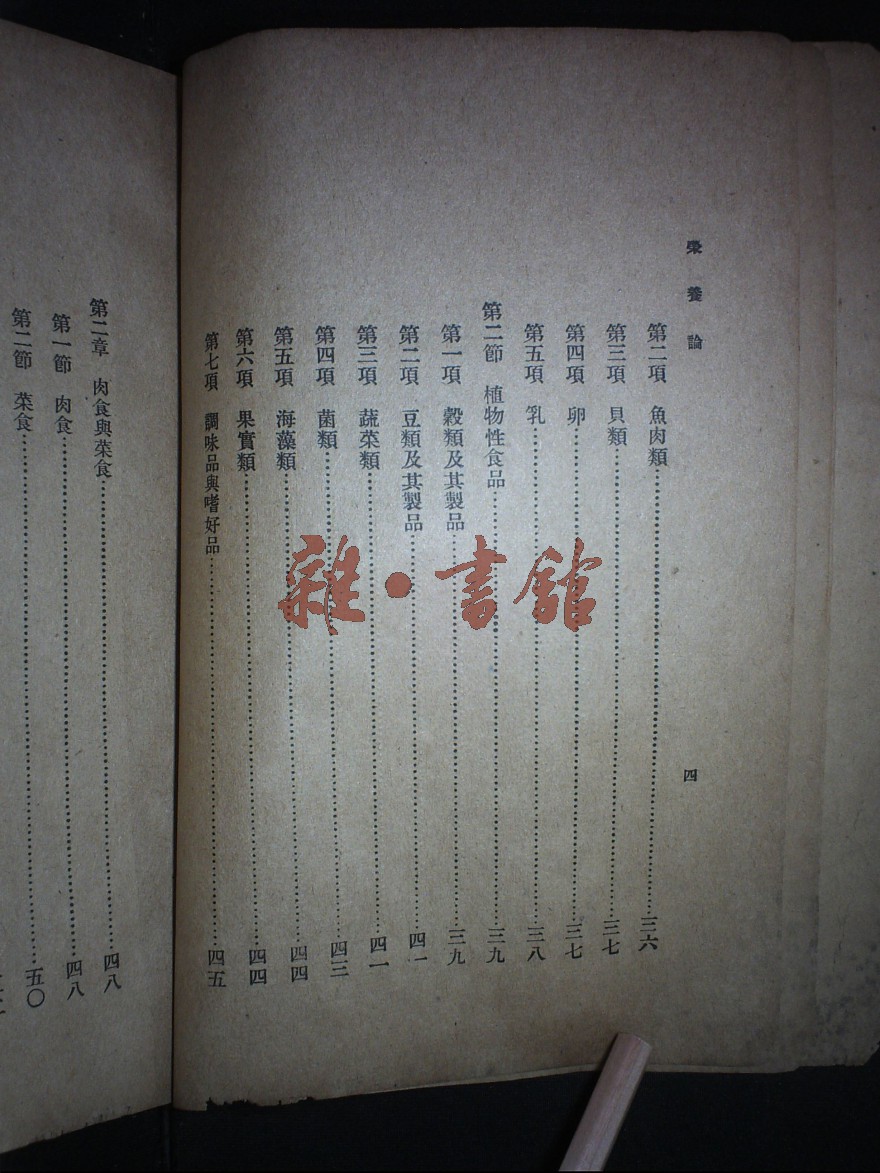 榮養論
四
第二項 魚肉類……三六
第三項 貝類……三七
第四項 卵……三七
第五項 乳……三八
第二節 植物性食品……三九
第一項 穀類及其製品……三九
第二項 豆類及其製品……四一
第三項 蔬菜類……四一
第四項 菌類……四三
第五項 海藻類……四四
第六項 果實類……四四
第七項 調味品與嗜好品……四五
第二章 肉食與菜食……四八
第一節 肉食……四八
第二節 菜食……五〇
雜·書館